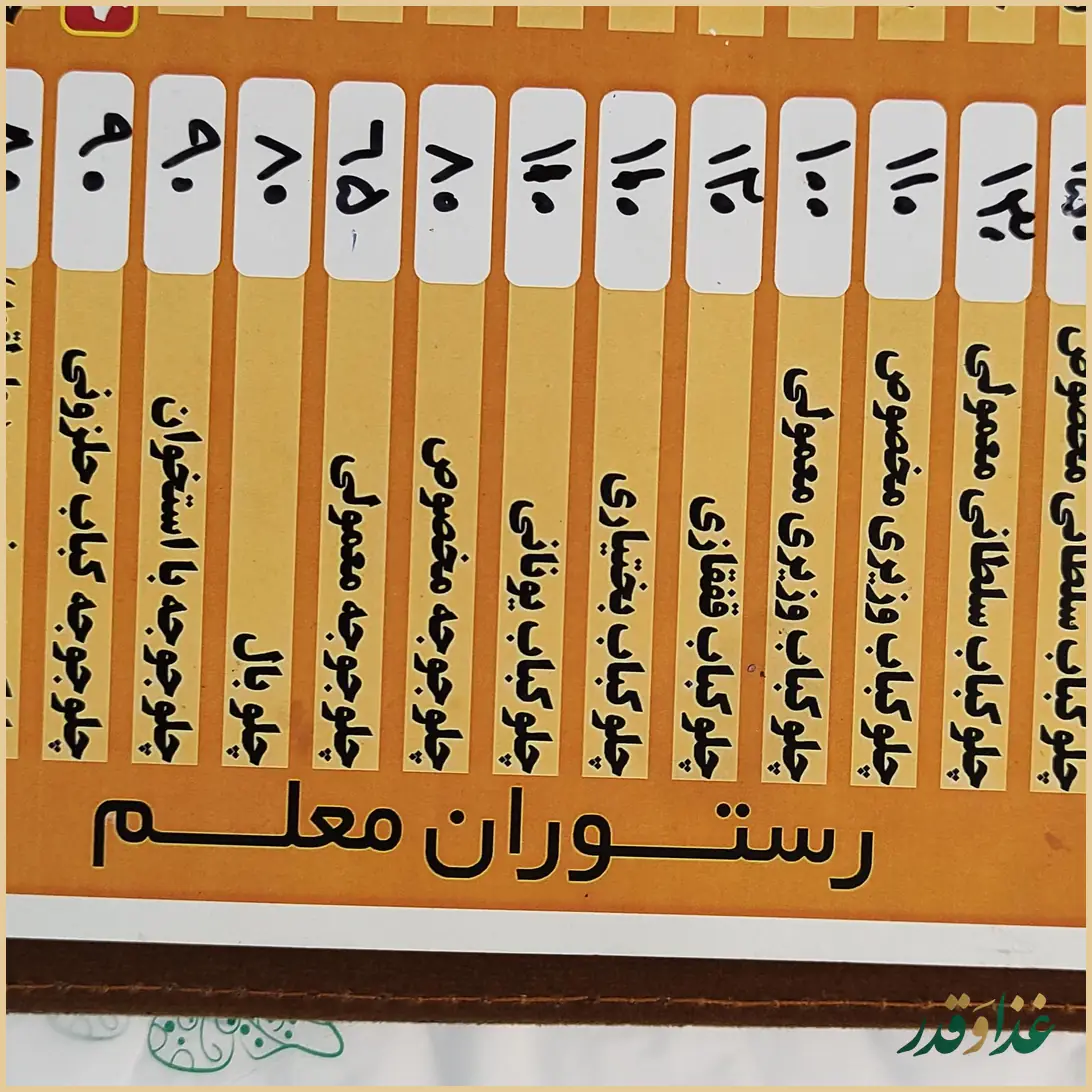 چلو کباب سلطانی مخصوص
چلو کباب سلطانی معمولی ۱۳۰
چلو کباب وزیری مخصوص ۱۱۰
چلو کباب وزیری معمولی ۱۰۰
چلو کباب قفقازی ۱۲۰
چلو کباب بختیاری
چلو کباب یونانی
چلو جوجه مخصوص ۸۰
چلو جوجه معمولی ۶۵
چلو بال ۸۰
چلو جوجه با استخوان ۹۰
چلو جوجه کباب حلزونی ۹۰
رستوران معلم
غذا و قدر